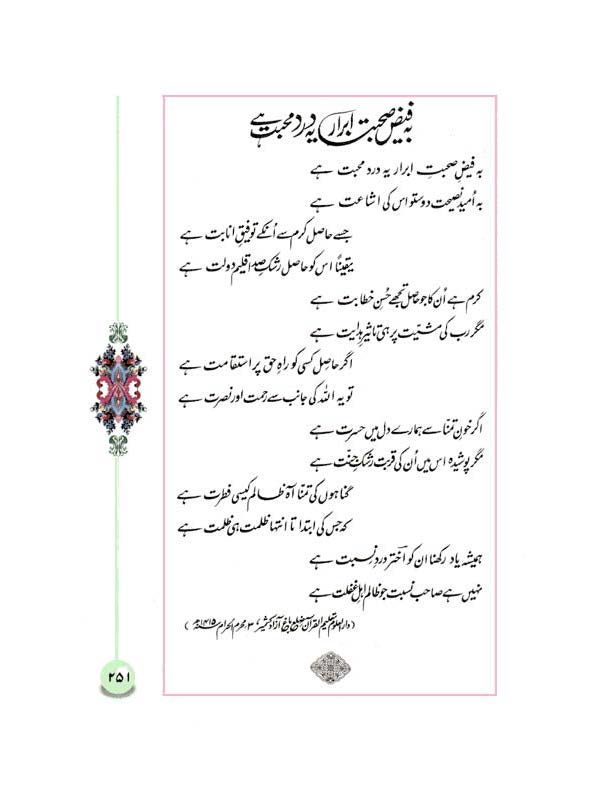 بہ فیض صحبت ابرار یہ درد محبت ہے
بہ فیضِ صحبتِ ابرار یہ درد محبت ہے
بہ اُمید نصیحت دوستو اس کی اشاعت ہے
جسے حاصل کرم سے اُنکے توفیقِ انابت ہے
یقیناً اس کو حاصل رشکِ صد اقلیم دولت ہے
کرم ہے اُن کا جو حاصل تجھے حُسنِ خطابت ہے
مگر رب کی مشیّت پر ہی تاثیرِ ہدایت ہے
اگر حاصل کسی کو راہِ حق پر استقامت ہے
تو یہ اللہ کی جانب سے رحمت اور نصرت ہے
اگر خونِ تمنّا سے ہمارے دل میں حسرت ہے
مگر پوشیدہ اس میں اُن کی قربت رشکِ جنّت ہے
گناہوں کی تمنّا آہ ظالم کیسی فطرت ہے
کہ جس کی ابتدا تا انتہا ظلمت ہی ظلمت ہے
ہمیشہ یاد رکھنا ان کو اخترؔ دردِ نسبت ہے
نہیں ہے صاحب نسبت جو ظالم اہلِ غفلت ہے
(دار العلوم تعلیم القرآن، ضلع باغ آزاد کشمیر، ۳ محرم الحرام ۱۴۱۵ھ)
۲۵۱